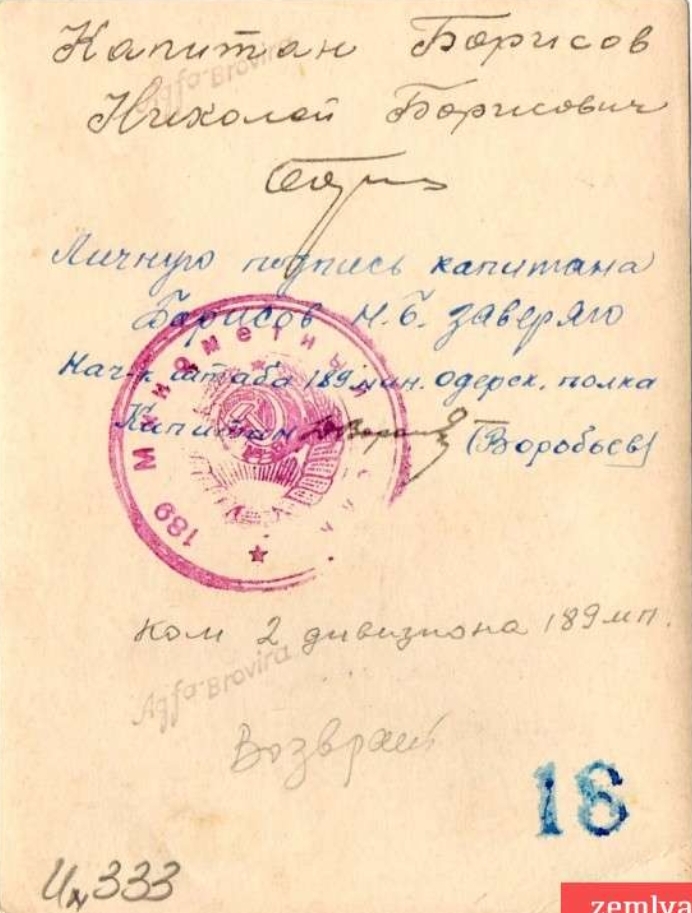 Капитан Борисов
Agfa-Brovira
Николай Борисович
Личную подпись капитана
Борисов Н.Б. заверяю
Нач-к штаба 189 мин. Одерск. полка
Капитан (Воробьев)
189 Минометный
ком 2 дивизиона 189 мп.
Agfa-Brovira
Возврат
18
Ин 333
zemlya